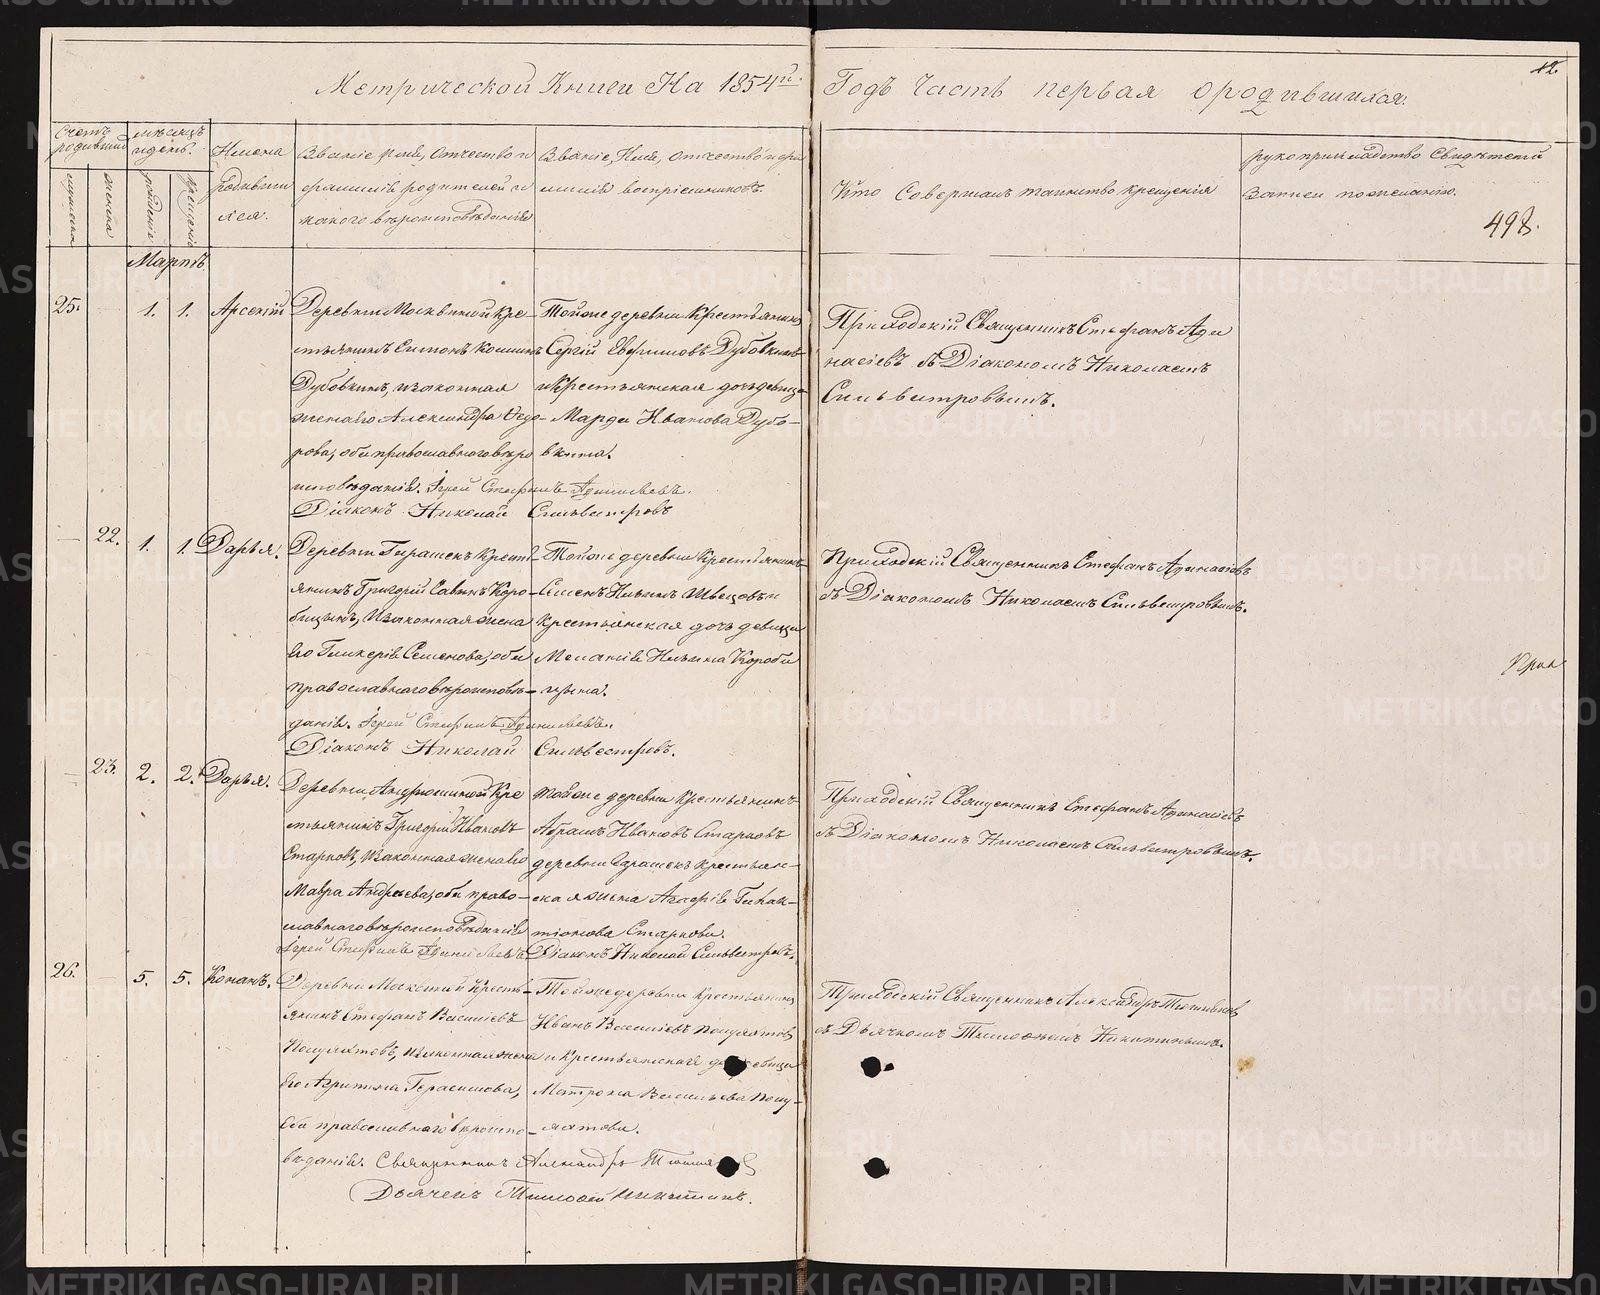 Метрической Книги На 1854й.
Годъ Часть первая о родившихся.
12.
Счетъ родивших
мѣсяцъ и день.
мужеска
женска
рожденія
крещенія
Имена
родивши
хся.
Званіе, имя, отчество и
фамилія родителей и
какого вѣроисповѣданія
Званіе, Имя, отчество и фа
милія воспріемниковъ.
Кто Совершалъ таинство крещенія
рукоприкладство Свидѣтелей
записи по желанію.
498.
Мартъ.
25. 1. 1. Арсеній
Деревни Москвиной Кре
стьянинъ Симонъ
Дубовкинъ, и законная
жена его Александра Ѳедо-
рова, оба православнаго вѣро
исповѣданія. Іерей Стефанъ
Діаконъ Николай Сильвестровъ
Тойже деревни Крестьянинъ
Сергій Евфимовъ Дубовкинъ
и Крестьянская дочь девица
Марфа Иванова Дубо-
вкина.
Приходскій Священникъ Стефанъ Афа
насіевъ съ Діакономъ Николаемъ
Сильвестровымъ.
22. 1. 1. Дарья.
Деревни Гарашекъ Кресть
янинъ Григорій Савинъ Коро-
бицынъ, И законная жена
его Гликерія Семенова, оба
православнаго вѣроисповѣ-
данія. Іерей Стефанъ
Діаконъ Николай Сильвестровъ.
Тойже деревни Крестьянинъ
Семенъ Ильинъ Швецовъ и
Крестьянская дочь девица
Меланія Ильина Короби
цына.
Приходскій Священникъ Стефанъ Афанасіевъ
съ Діакономъ Николаемъ Сильвестровымъ.
23. 2. 2. Дарья.
Деревни Андрюшиной Кре
стьянинъ Григорій Ивановъ
Старковъ, и законная жена его
Мавра Андреева, оба право-
славнаго вѣроисповѣданія
Іерей Стефанъ Діаконъ Николай Сильвестровъ.
Тойже деревни Крестьянинъ
Абрамъ Ивановъ Старковъ
деревни Гарашекъ крестьян-
ская жена Агафія
Старкова.
Приходскій Священникъ Стефанъ Афанасіевъ
съ Діакономъ Николаемъ Сильвестровымъ.
26. 5. 5. Кононъ.
Деревни Кресть-
янинъ Стефанъ Василіевъ
и законная жена
его Агрипина Герасимова,
оба православнаго вѣроиспо-
вѣданія. Священникъ Александръ
Дьячекъ Никитинъ.
Тойже деревни Крестьянинъ
Иванъ Василіевъ
и Крестьянская девица
Матрона Васильева
Приходскій Священникъ Александръ
съ Дьячкомъ Никитинымъ.
METRIKI.GASO-URAL.RU